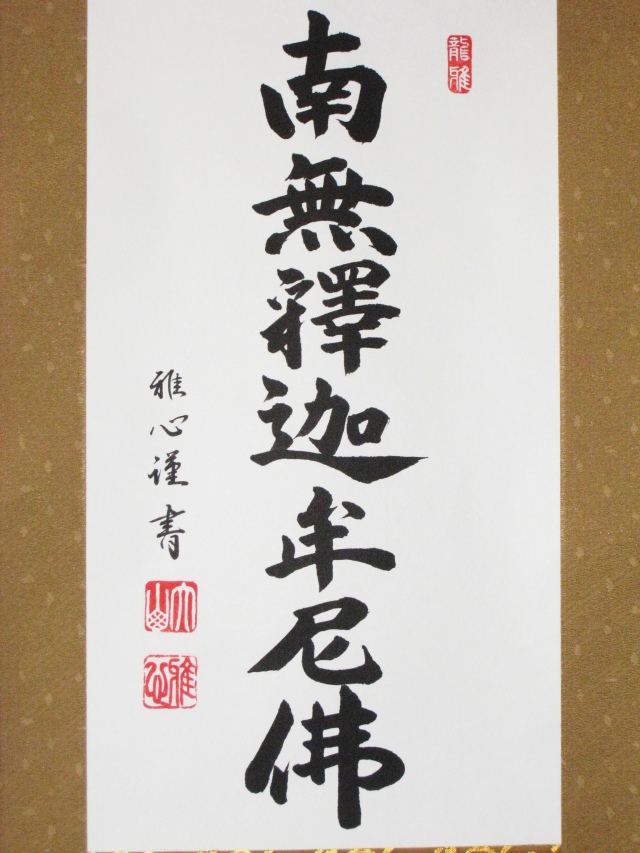 龍雅
南無釋迦牟尼佛
雅心謹書
雅心